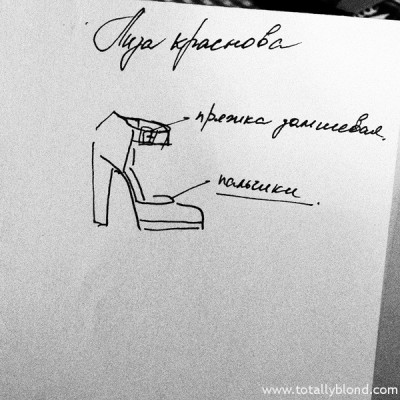 Лиза краснова
пряжка замшевая.
пальчики.
www.totallyblond.com